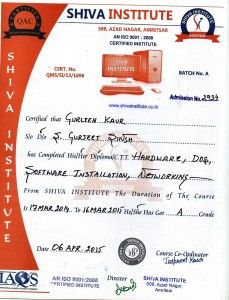 SHIVA INSTITUTE
508, AZAD NAGAR, AMRITSAR
AN ISO 9001 - 2008
CERTIFIED INSTITUTE
QAC
CERT. No.
QMS/SI/13/1696
BATCH No. A
Admission No. 2934
www.shivainstitute.co.in
SHIVA INSTITUTE
Certified that Gurleen Kaur
S/o D/o S. Gurjeet Singh
has Completed His/Her Diploma C.T.T. Hardware, DOS,
Software Installation, Networking
From SHIVA INSTITUTE The Duration of The Course
Is 17 MAR 2014 To 16 MAR 2015 He/She Has Got A Grade
Date 06 APR. 2015
Course Co-Ordinator
IAQS
AN ISO 9001 - 2008
CERTIFIED INSTITUTE
Director
SHIVA INSTITUTE
508, Azad Nagar
Amritsar